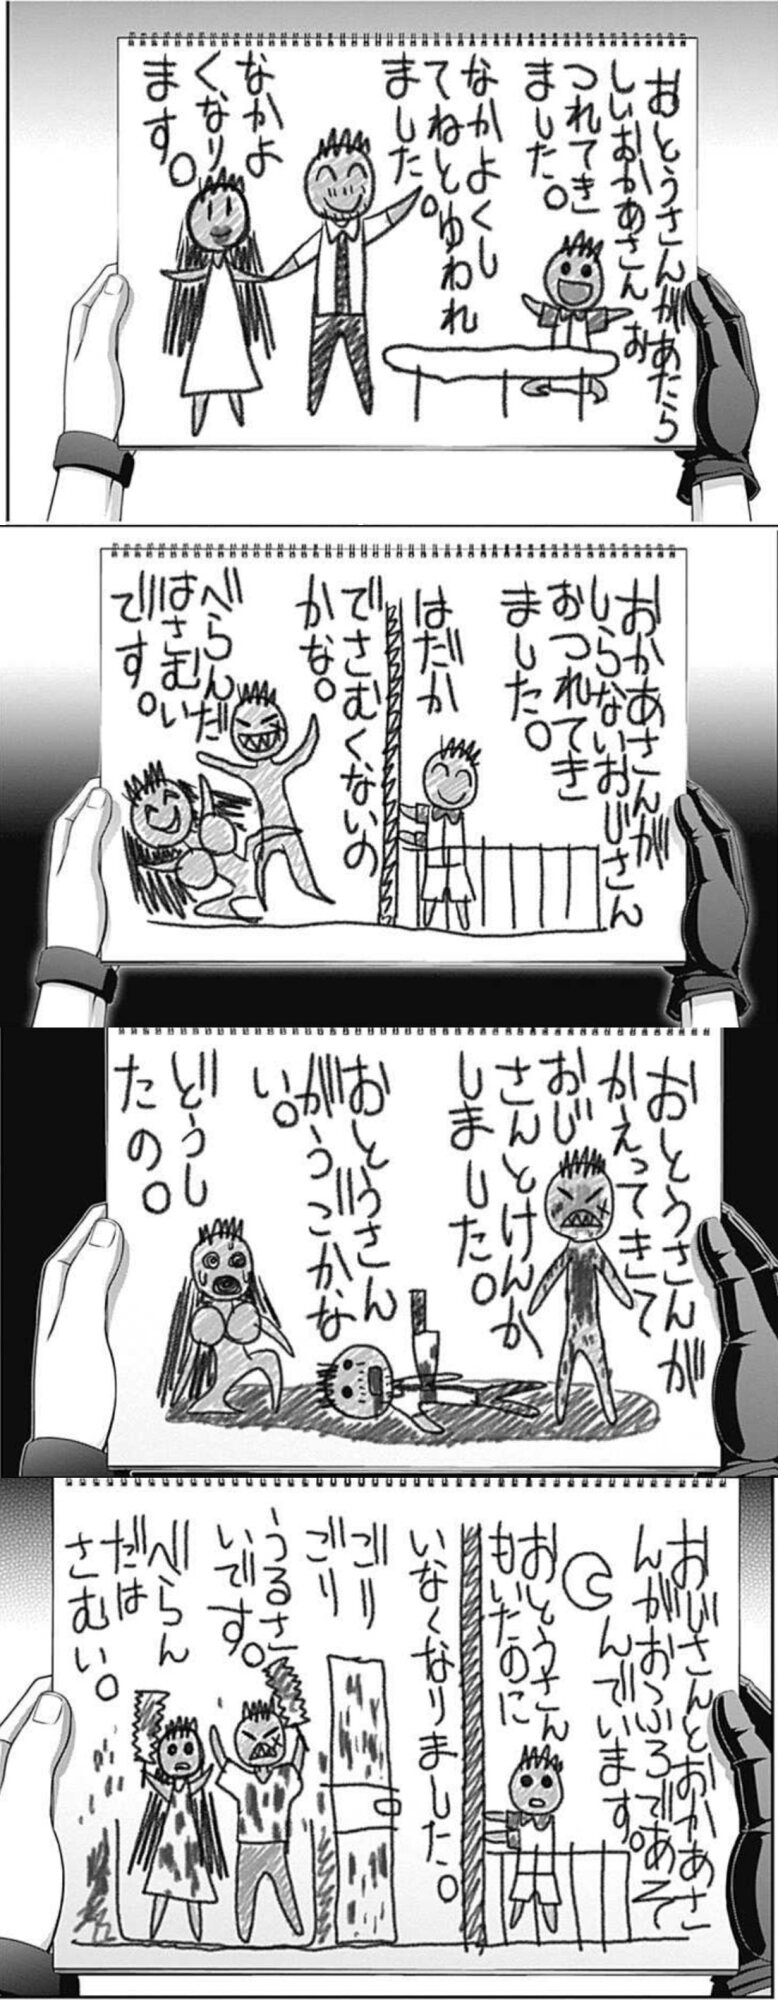 おとうさんがあたら
しいおかあさんお
つれてき
ました。
なかよくし
てねと。ゆわれ
ました
なかよ
くなり
ます。
おかあさんが
しらないおじさん
おつれてき
ました。
はだか
でさむくないの
かな。
べらんだ
はさむい
です。
おとうさんが
かえってきて
おじ
さんとけんか
しました。
おとうさん
がうごかな
い。
どうし
たの。
おじさんとおかあさ
んがおふろであそ
んでいます。
おとうさん
もいたのに
いなくなりました。
ごり
ごり
うるさ
いです。
べらん
だは
さむい。